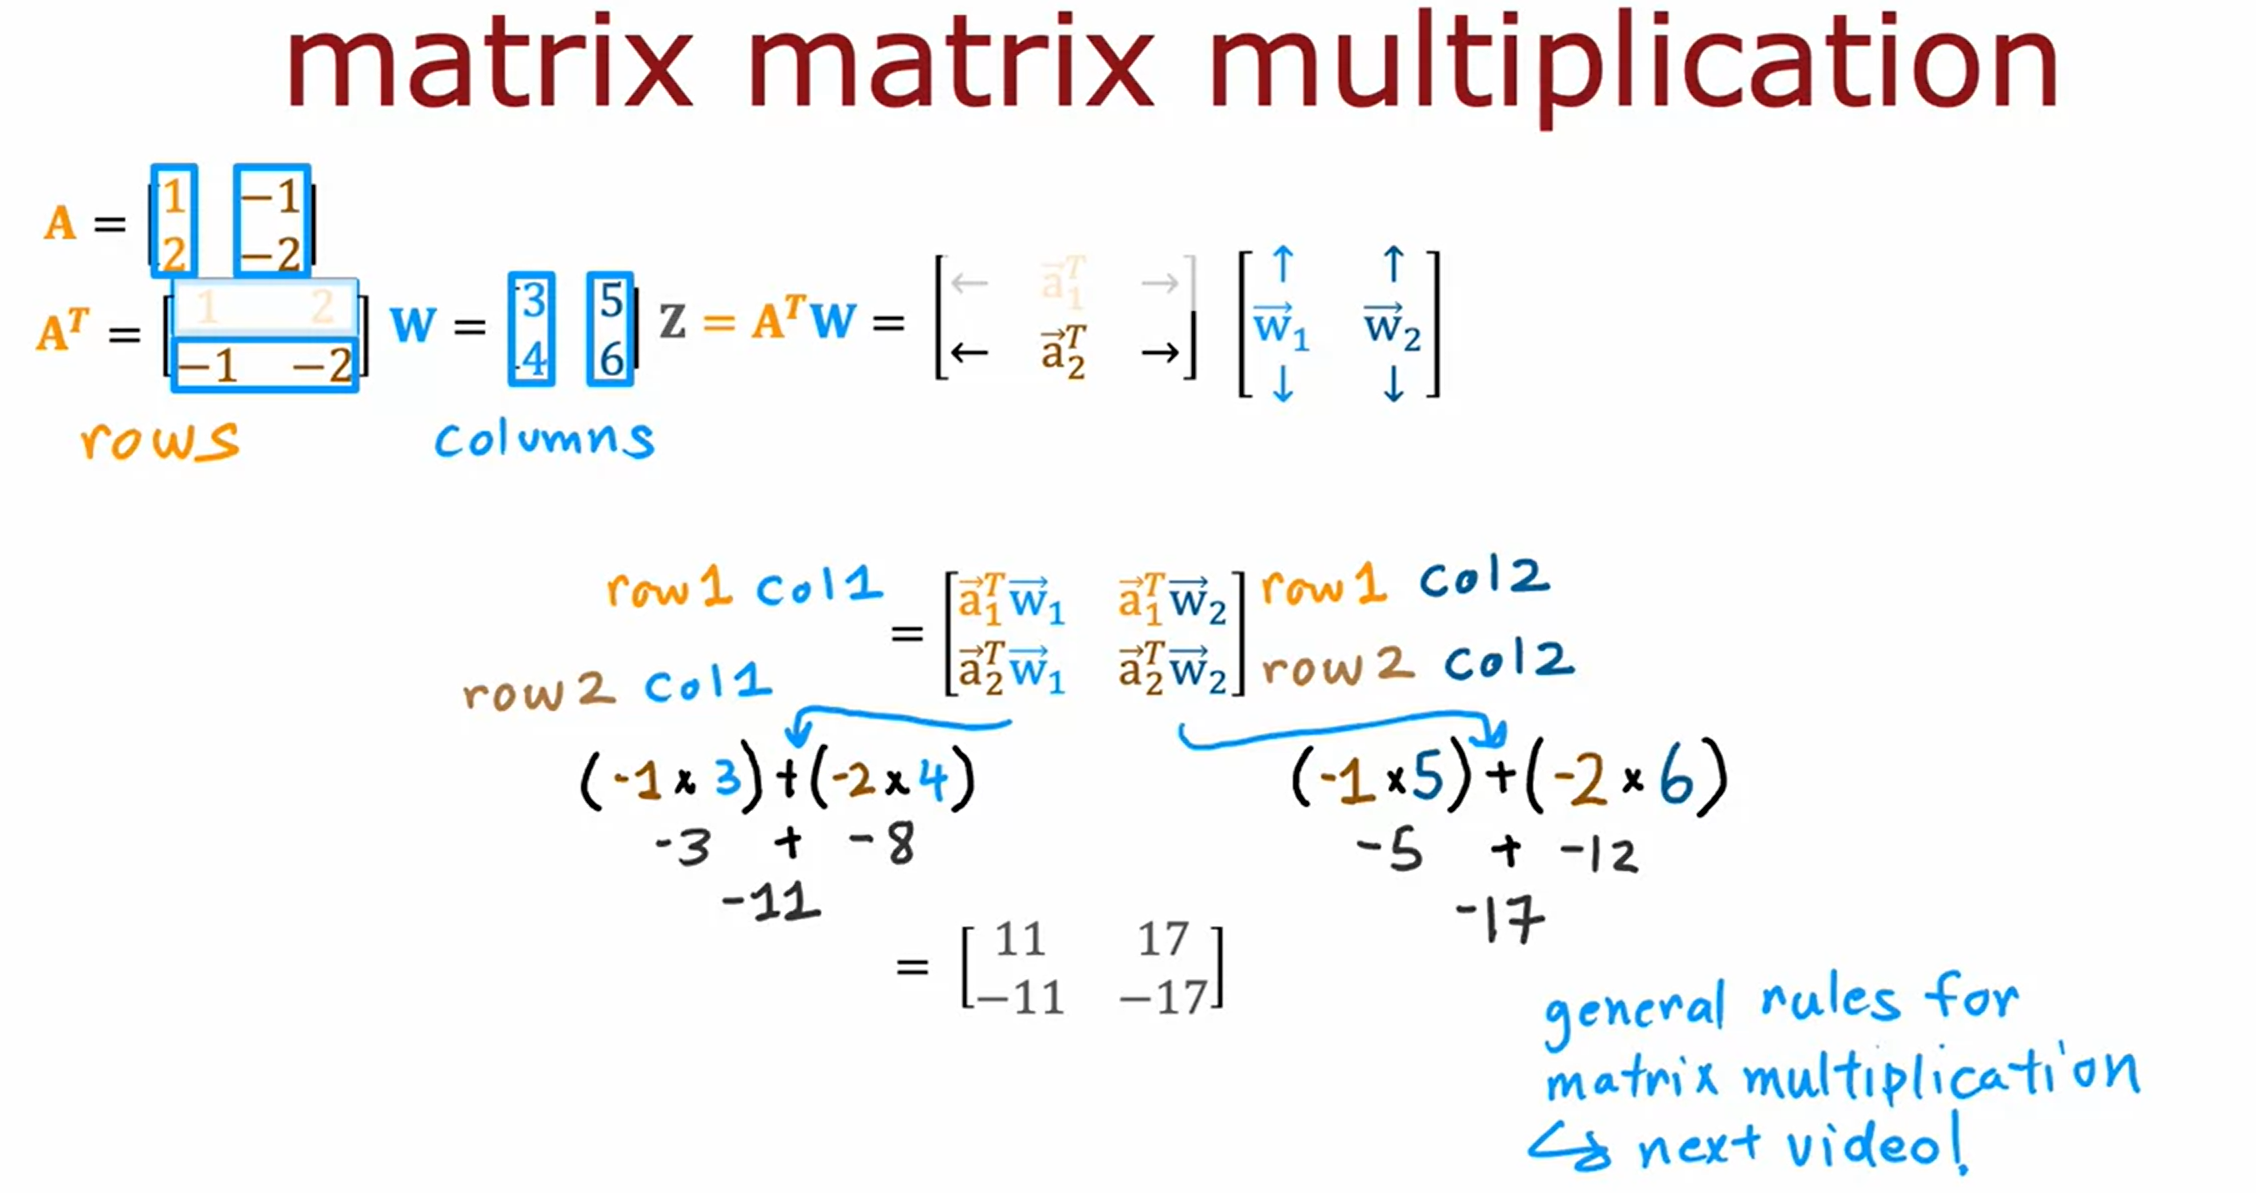 matrix matrix multiplication
A = [1 −1
2 −2]
Aᵀ = [1 2
−1 −2]
W = [3 5
4 6]
Z = AᵀW = [← a⃗₁ᵀ →
← a⃗₂ᵀ →] [↑ ↑
w⃗₁ w⃗₂
↓ ↓]
rows
columns
row1 col1
row2 col1
= [a⃗₁ᵀw⃗₁ a⃗₁ᵀw⃗₂
a⃗₂ᵀw⃗₁ a⃗₂ᵀw⃗₂]
row1 col2
row2 col2
(-1 × 3) + (-2 × 4)
-3 + -8
-11
(-1 × 5) + (-2 × 6)
-5 + -12
-17
= [11 17
−11 −17]
general rules for
matrix multiplication
↪ next video!